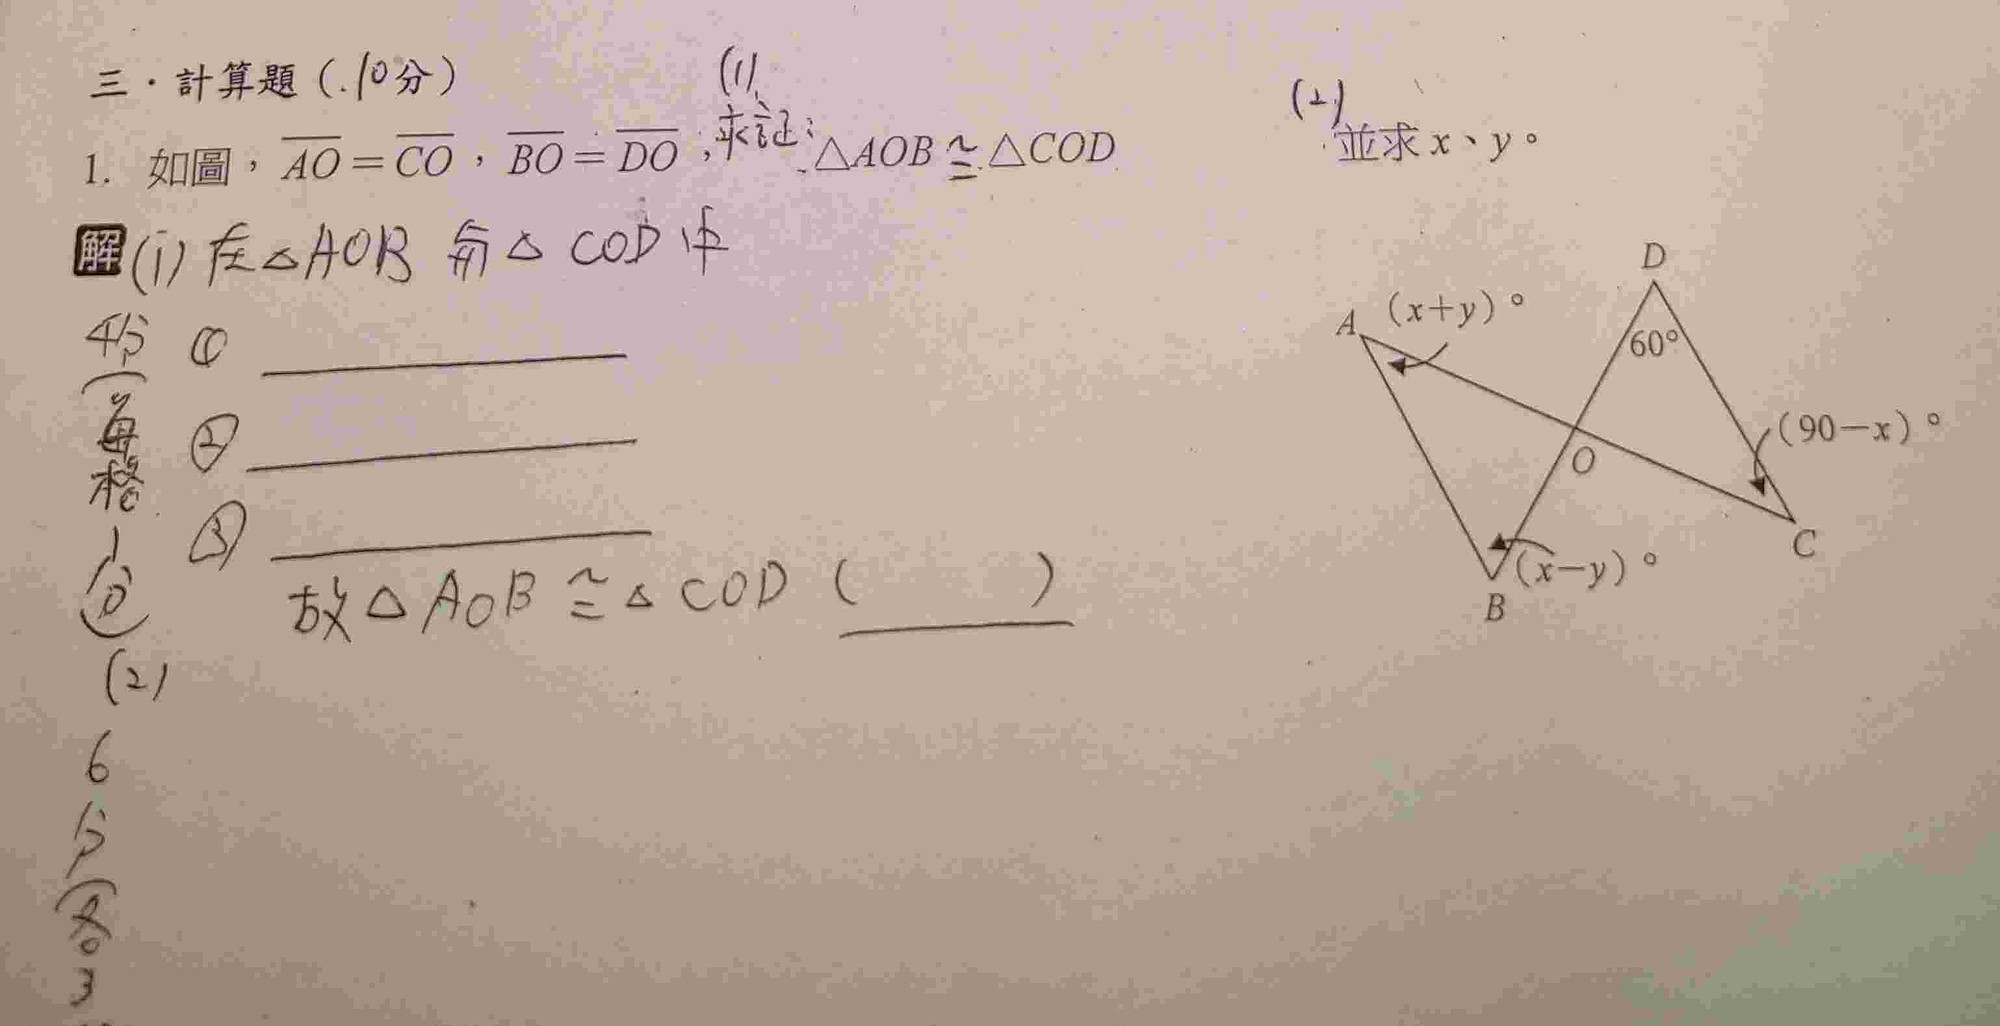 三．計算題（10分）
1. 如圖，AO＝CO，BO＝DO，(1)求証：△AOB≅△COD (2)並求x、y。
解 (1) 在△AOB 與△COD中
4分（每格1分）
①
②
③
故△AOB≅△COD（ ）
(2)
6分（各3
A
(x+y)°
D
60°
(90−x)°
O
C
(x−y)°
B